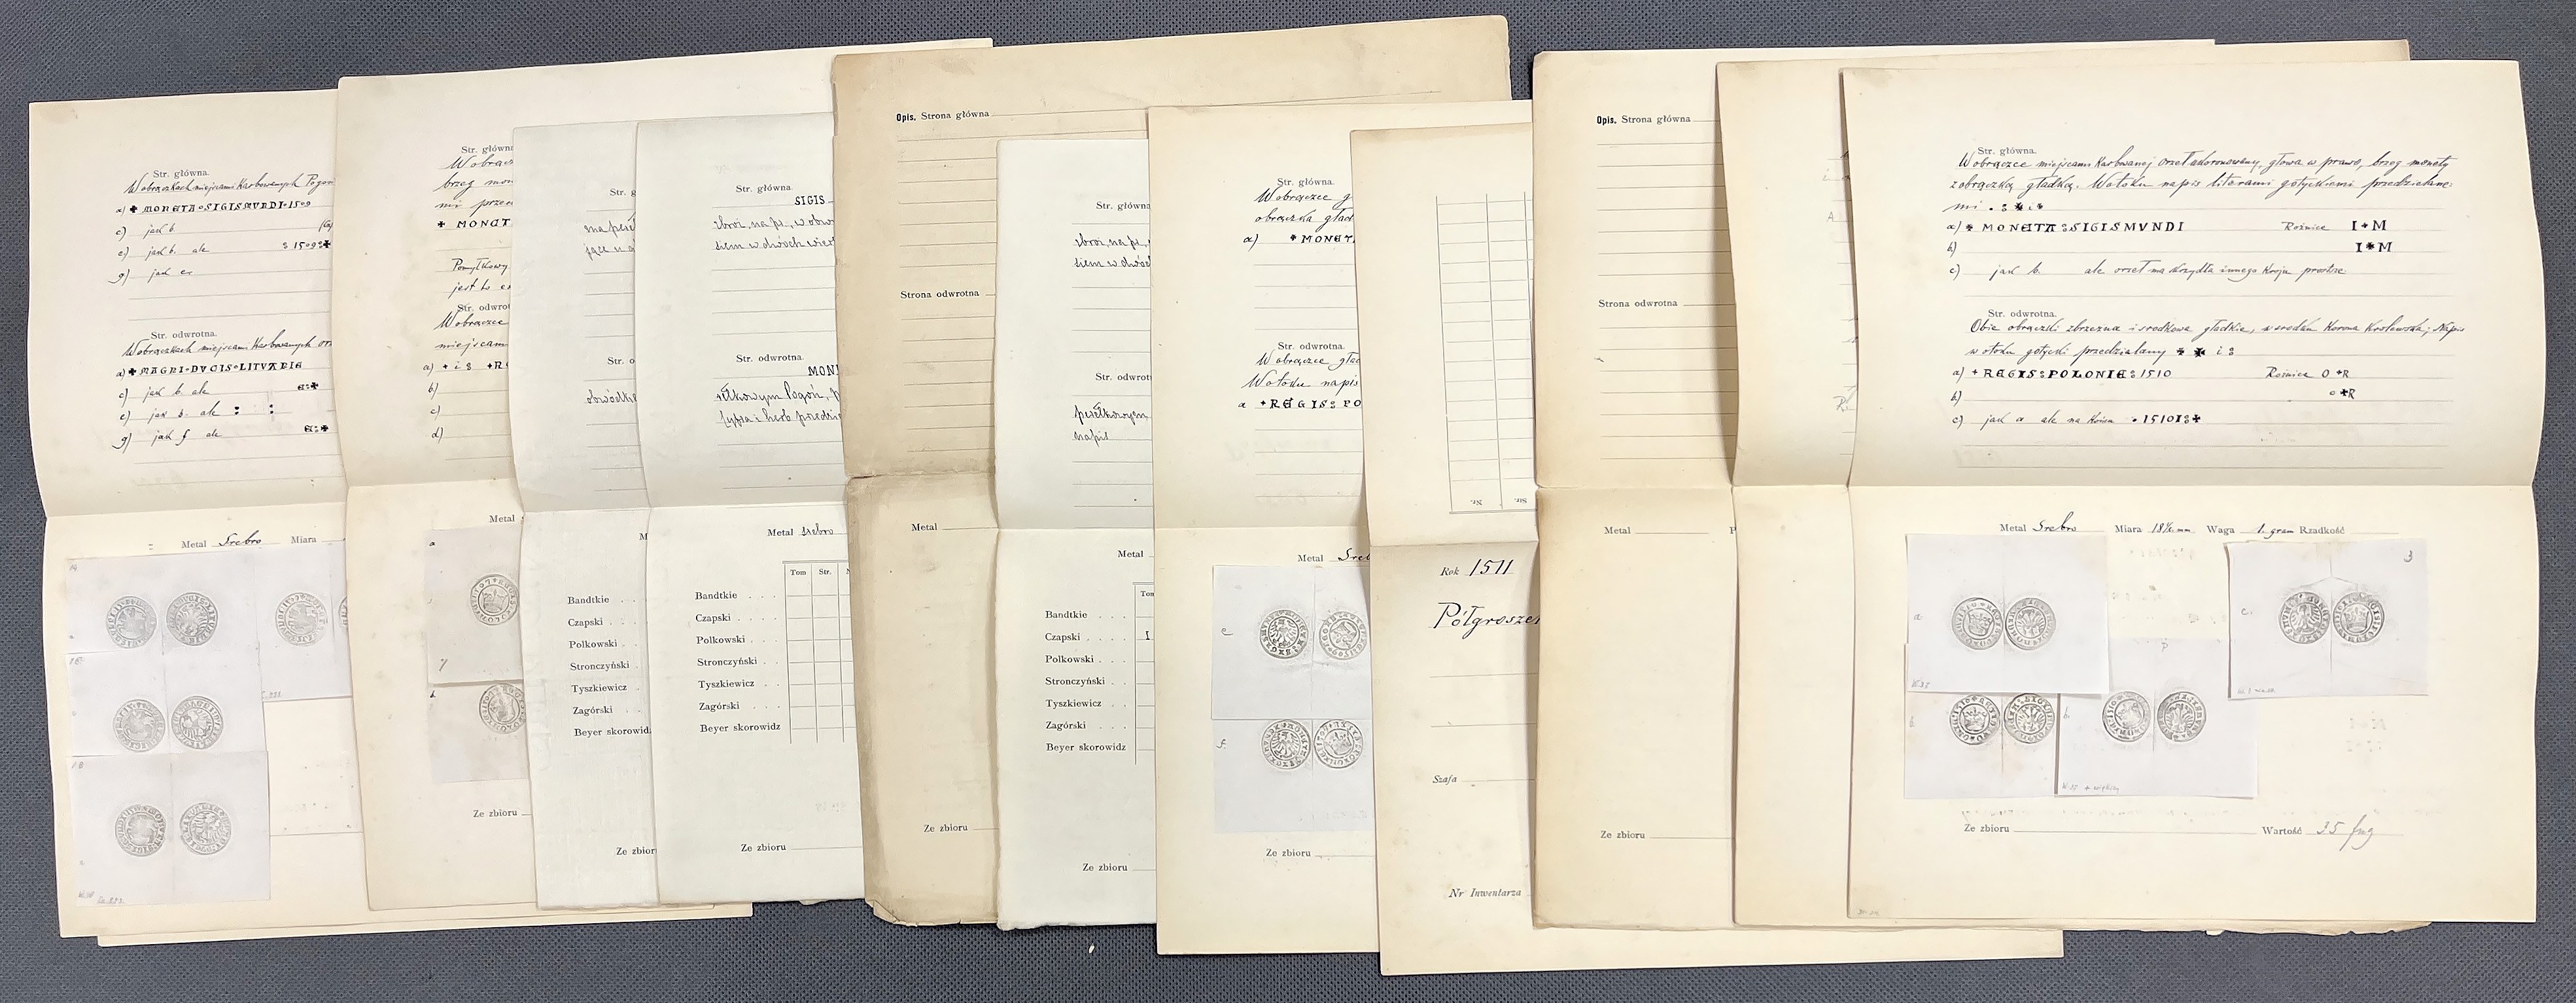 Str. główna.
W obrączkach miejscami Karbowanych Pogoń
a) ✚ MONETA∘SIGISMVNDI∘1509
c) jak b.
e) jak b. ale : 1509:✚
g) jak e.
Str. odwrotna.
W obrączkach miejscami Karbowanych
a) ✚ MAGNI∘DVCIS∘LITVANIE
c) jak b. ale E:✚
e) jak b. ale : :
g) jak f ale E:✚
Metal Srebro Miara
Str. główn
W obrącz
brzeg mon
mi prze
✚ MONET
Pomyłkowy
jest to
Str. odwrot
W obrączce
miejscami
a) + i : +R
b)
c)
d)
Metal
a
b
Ze zbioru
Str. g
Str. o
obwódk
M
Bandtkie . .
Czapski . . .
Polkowski .
Stronczyński
Tyszkiewicz .
Zagórski . .
Beyer skorowid
Ze zbior
Str. główna.
SIGIS
zbroi, na ps., w obw
siem w dwóch wier
Str. odwrotna.
MON
ełkowym Pogoń, p
Metal srebro
Tom Str.
Bandtkie . . .
Czapski . . . .
Polkowski . . .
Stronczyński . .
Tyszkiewicz . .
Zagórski . . .
Beyer skorowidz
Ze zbioru
Opis. Strona główna
Strona odwrotna
Metal
Ze zbioru
Str. główna
zbroi, na ps.,
siem w dwóc
Str. odwrot
pesełkowym
napis
Metal
Tom
Bandtkie . . .
Czapski . . . . I
Polkowski . . .
Stronczyński . .
Tyszkiewicz . .
Zagórski . . .
Beyer skorowidz
Ze zbioru
Str. główna.
W obrączce g
obrączka gład
a) ✚ MONET
Str. odwrotna.
W obrączce gład
W otoku napis
a +REGIS:PO
Metal Sreb
e
f.
Ze zbioru
Nr. Str.
Rok 1511
Półgroszek
Szafa
Nr Inwentarza
Opis. Strona główna
Strona odwrotna
Metal
Ze zbioru
Str. główna.
W obrączce miejscami Karbowanej orzeł ukoronowany, głowa w prawo, brzeg monety
z obrączką gładką. W otoku napis literami gotyckiemi przedzielane-
mi
a) ✚ MONETA:SIGISMVNDI Różnice I+M
b) I✚M
c) jak b. ale orzeł ma skrzydła innego kroju prostsze
Str. odwrotna.
Obie obrączki zbrzeżna i środkowa gładkie, w środku Korona Królewska; Napis
w otoku gotycki przedzielany ✚ ✚ i :
a) +REGIS:POLONIE:1510 Różnice O +R
b) ∘✚R
c) jak a ale na końcu ∘1510I:✚
Metal Srebro Miara 18½ mm Waga 1. gram Rzadkość
a.
b
b
c.
3
Ze zbioru Wartość 35 fng